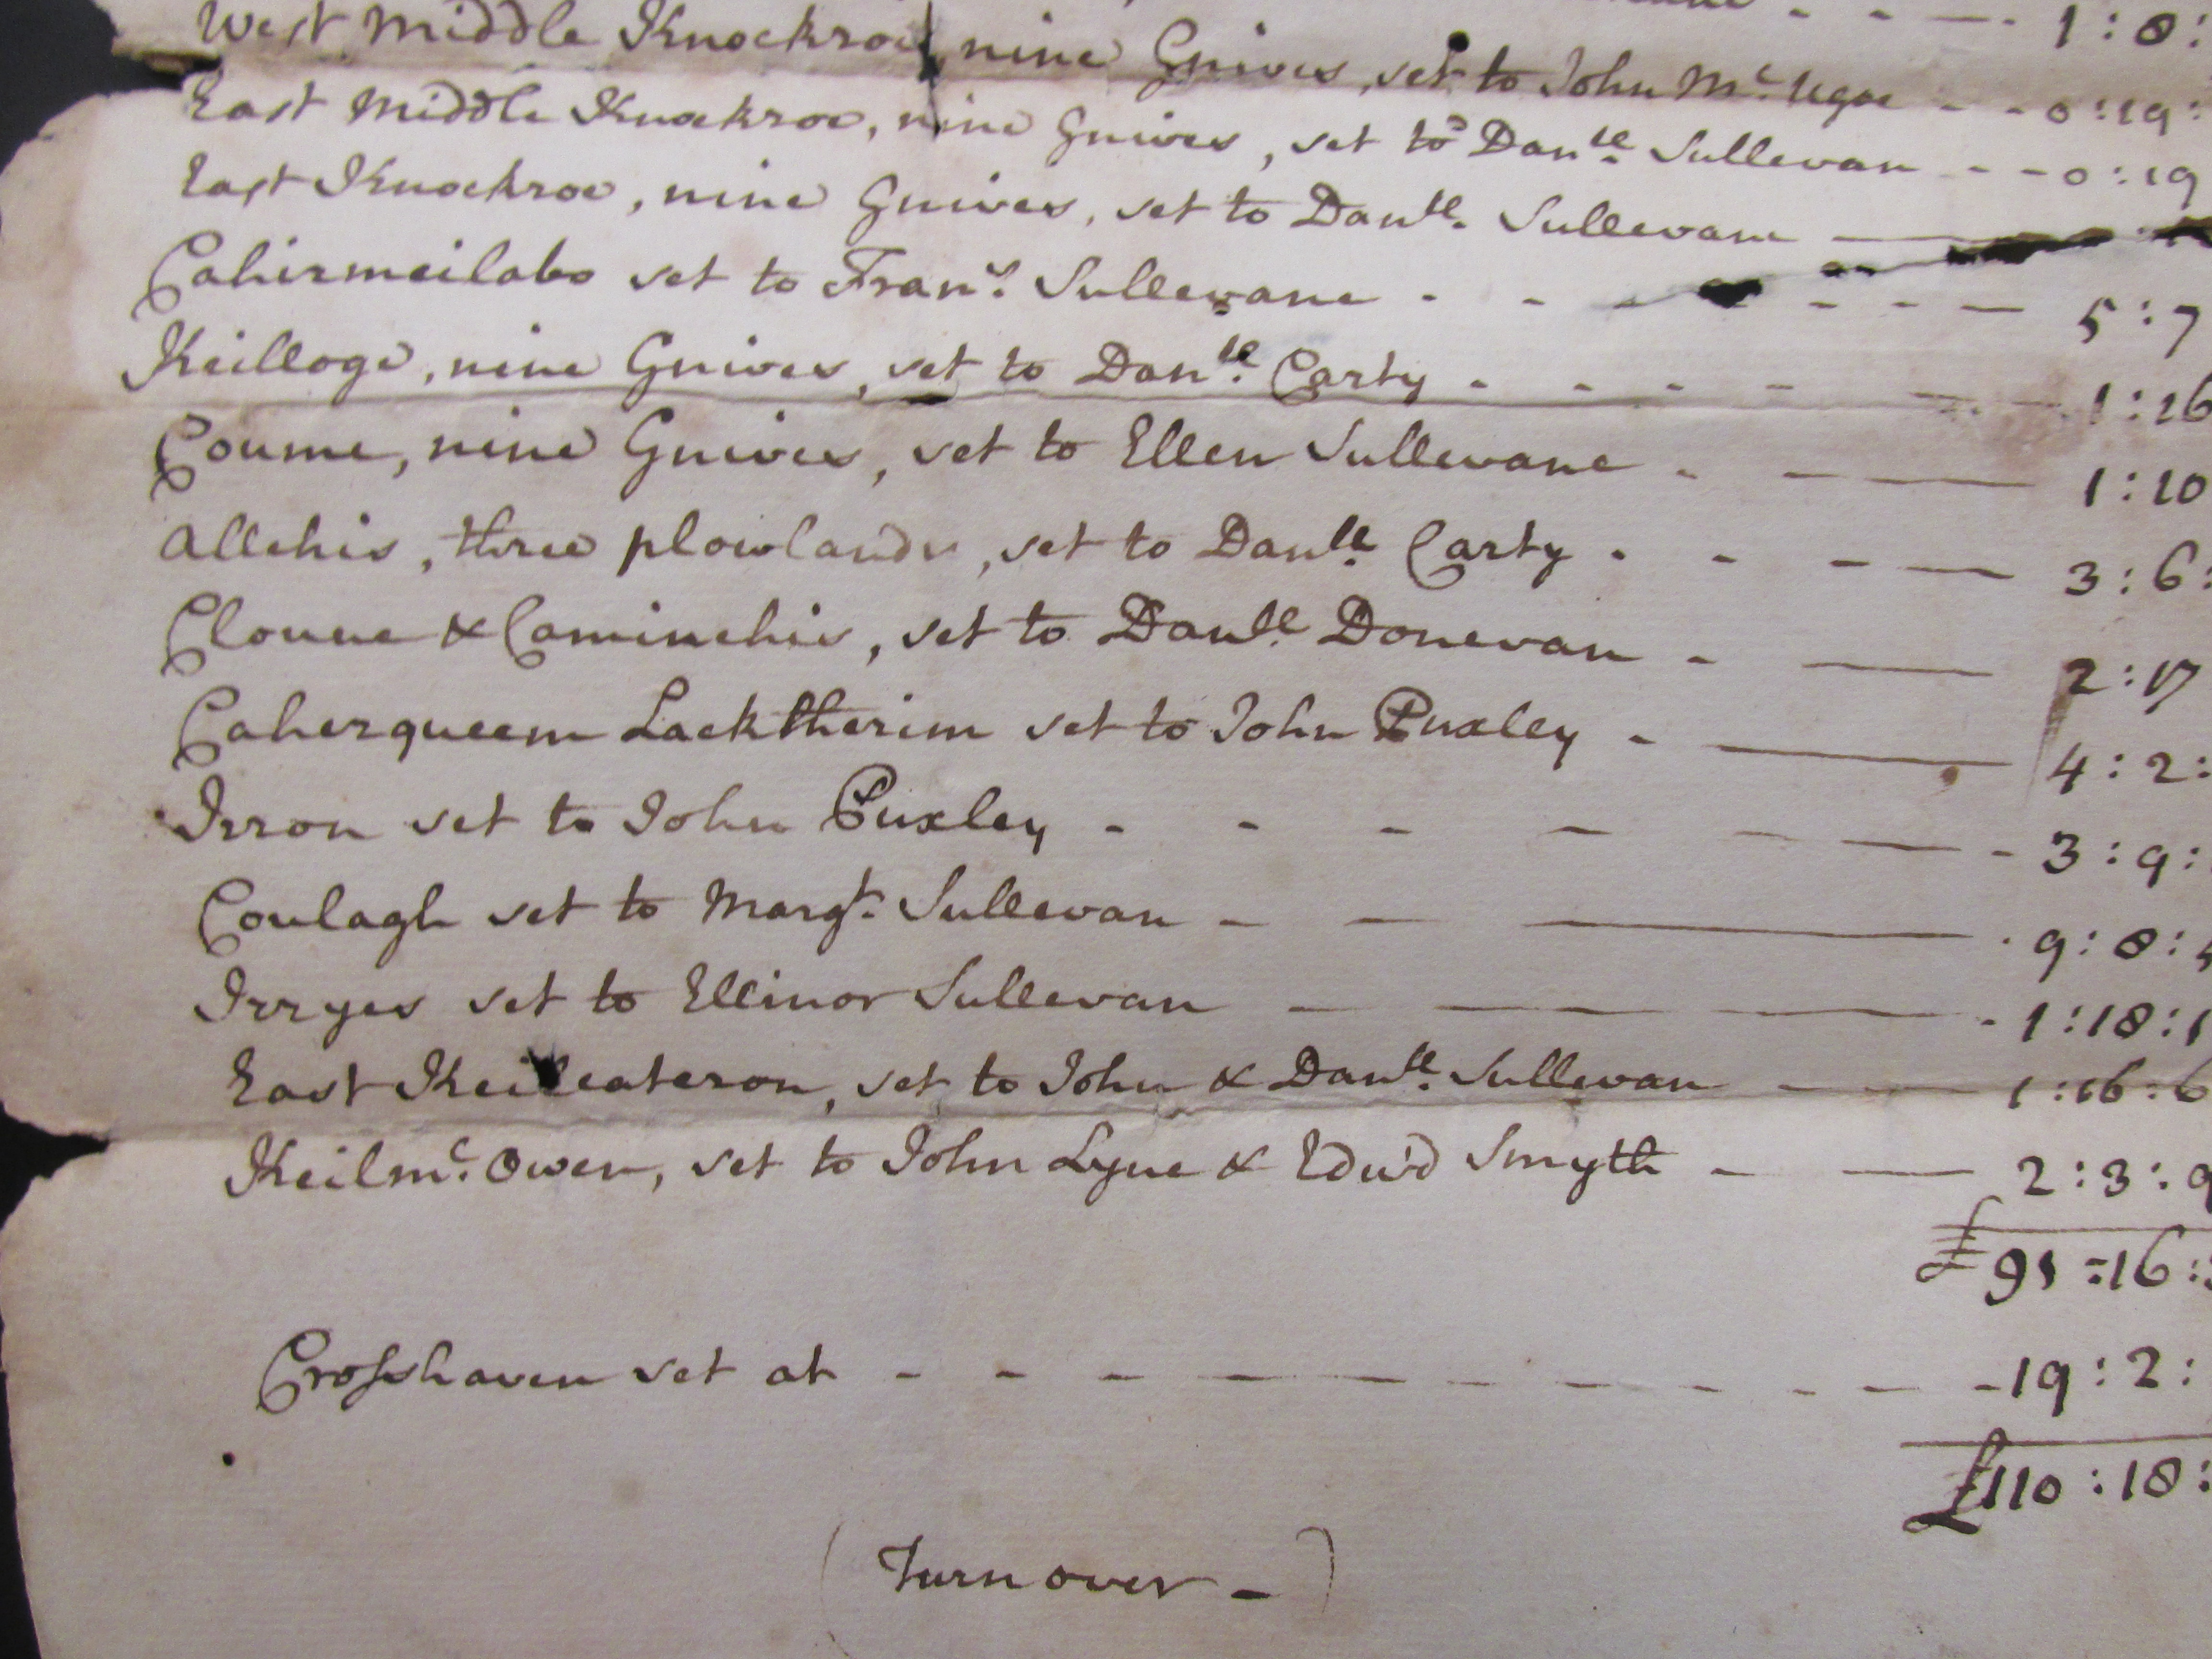 - - - 1 : 8 :
West Middle Knockroe, nine Gnives, set to John Mc. - - 0 : 19 :
East Middle Knockroe, nine Gnives, set to Danll. Sullevan - - 0 : 19
East Knockroe, nine Gnives, set to Danll. Sullevane —
Cahirmeilabo set to Frans. Sullevane - - - - - - - — 5 : 7
Keilloge, nine Gnives, set to Danll. Carty - - - - — 1 : 16
Coume, nine Gnives, set to Ellen Sullevane - — — 1 : 10
Allehis, three plowlands, set to Danll. Carty - - - — 3 : 6 :
Cloune & Caminchis, set to Danll. Donevan - — 2 : 17
Caherqueem Lacktherim set to John Puxley - — 4 : 2 :
Irron set to John Puxley - - - - — — - 3 : 9 :
Coulagh set to Margt. Sullevan - — — 9 : 8 :
Irryes set to Ellinor Sullevan — — — — - 1 : 18 : 1
East Keilcateron, set to John & Danll. Sullevan — — 1 : 16 : 6
Keilmc. Owen, set to John Lyne & Edwd Smyth - — 2 : 3 : 9
£ 91 : 16 :
Crosshaven set at - - - - - - - - - - 19 : 2 :
£110 : 18 :
(Turn over - )